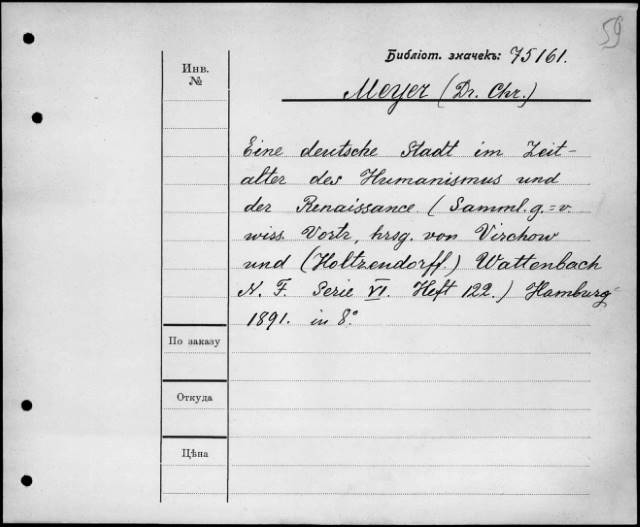 59
Библіот. значекъ: 75161.
Инв. №
Meyer (Dr. Chr.)
Eine deutsche Stadt im Zeit-
alter des Humanismus und
der Renaissance (Samml. g.=v.
wiss. Vortr, hrsg. von Virchow
und (Holtzendorff.) Wattenbach
N. F. Serie VI. Heft 122.) Hamburg
1891. in 8°.
По заказу
Откуда
Цѣна